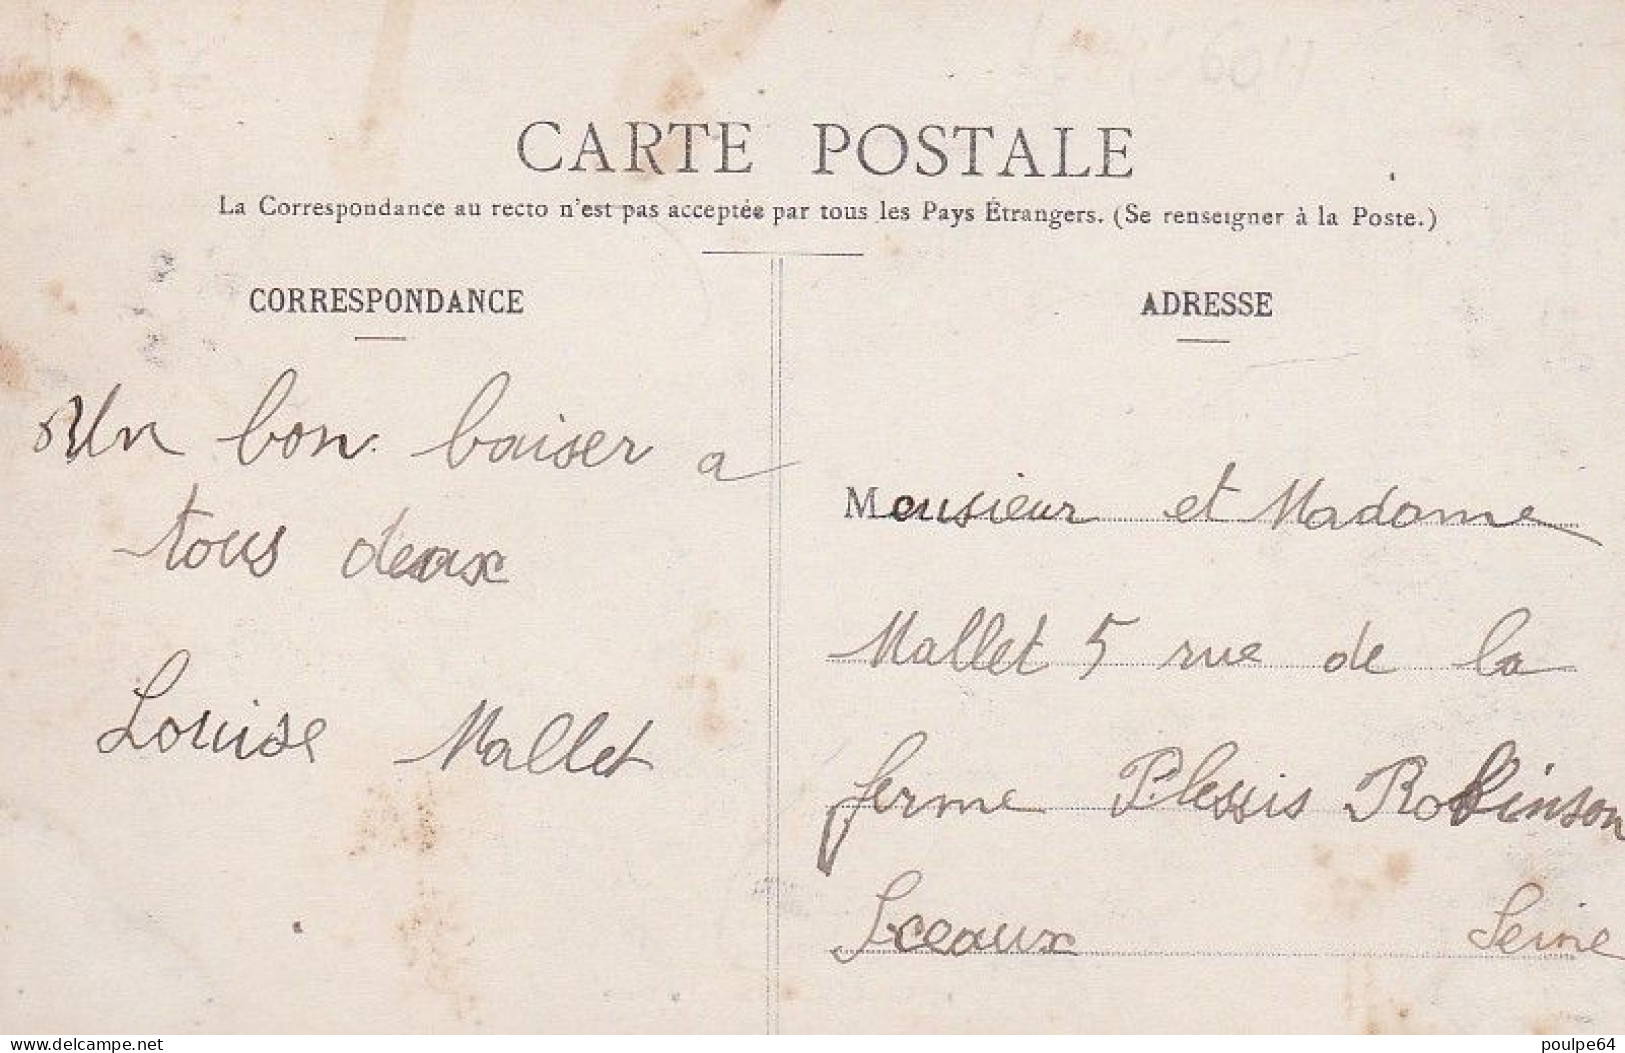 CARTE POSTALE
La Correspondance au recto n'est pas acceptée par tous les Pays Étrangers. (Se renseigner à la Poste.)
CORRESPONDANCE
Un bon baiser a
tous deux
Louise Mallet
ADRESSE
Monsieur et Madame
Mallet 5 rue de la
ferme Plessis Robinson
Sceaux Seine
www.delcampe.net
poulpe64